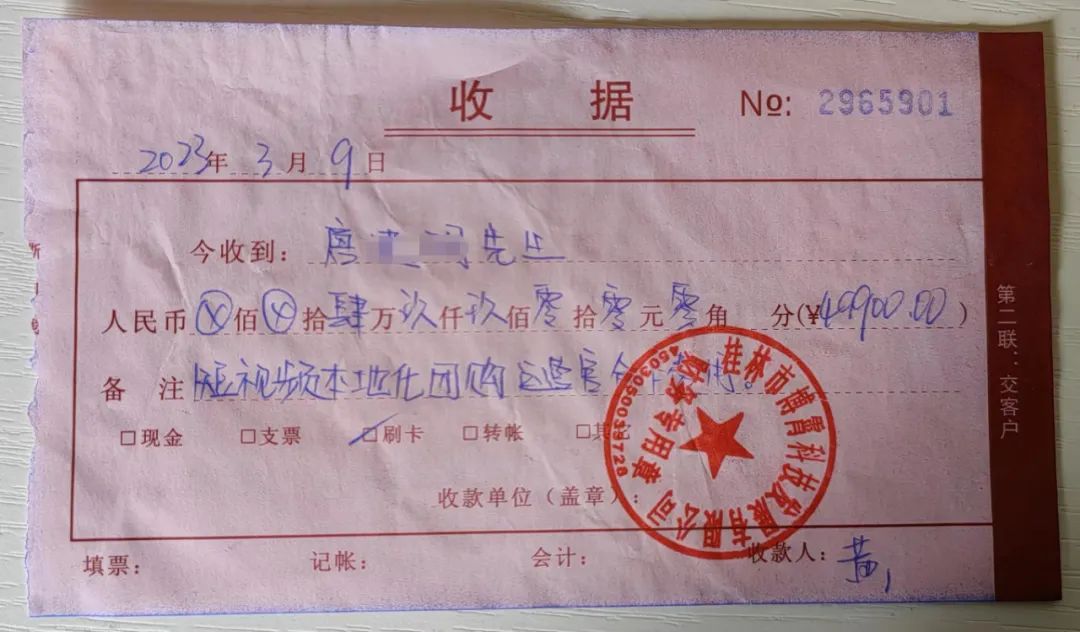 收 据 No: 2965901
2023年3月9日
今收到：唐 先生
人民币 ⊗佰⊗拾肆万玖仟玖佰零拾零元零角 分(¥49900.00)
备 注 短视频本地化团购运营官合作费用。
□现金 □支票 ☑刷卡 □转帐 □其
收款单位（盖章）：
桂林市博胄科技发展有限公司
财务专用章
4503050039728
填票： 记帐： 会计： 收款人：黄
第二联：交客户